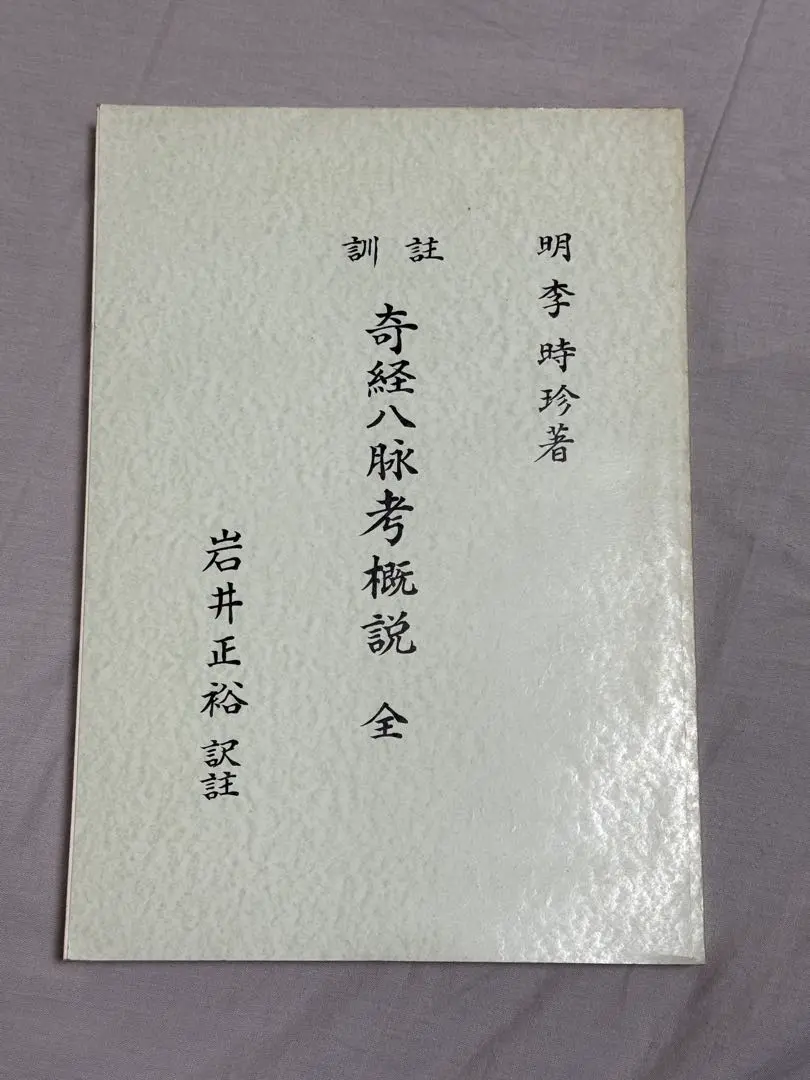 明 李時珍著
訓註
奇経八脉考概説 全
岩井正裕 訳註